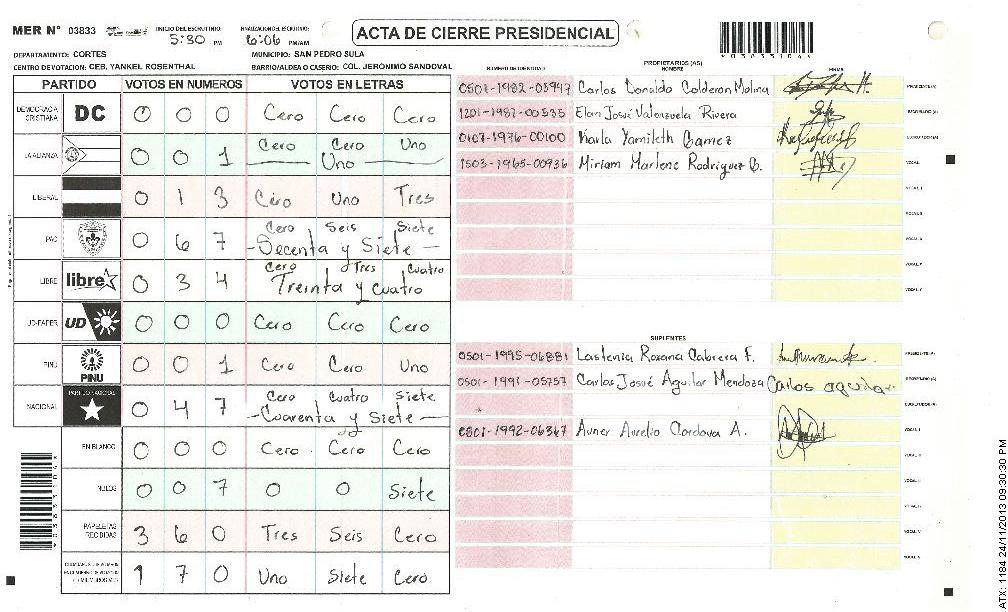 MER Nº 03833 INICIO DEL ESCRUTINIO: 5:30 PM FINALIZACION DEL ESCRUTINIO: 6:06 PM/AM
ACTA DE CIERRE PRESIDENCIAL
DEPARTAMENTO: CORTES MUNICIPIO: SAN PEDRO SULA
CENTRO DE VOTACION: CEB. YANKEL ROSENTHAL BARRIO/ALDEA O CASERIO: COL. JERONIMO SANDOVAL
PARTIDO VOTOS EN NUMEROS VOTOS EN LETRAS
DEMOCRACIA CRISTIANA DC 0 0 0 Cero Cero Cero
LA ALIANZA 0 0 1 Cero Cero Uno
Uno
LIBERAL 0 1 3 Cero Uno Tres
PAC 0 6 7 Cero Seis Siete
- Secenta y Siete -
LIBRE libre 0 3 4 Cero Tres Cuatro
Treinta y Cuatro
UD-FAPER UD 0 0 0 Cero Cero Cero
PINU PINU 0 0 1 Cero Cero Uno
NACIONAL PARTIDO NACIONAL 0 4 7 Cero Cuatro Siete
- Cuarenta y Siete -
EN BLANCO 0 0 0 Cero Cero Cero
NULOS 0 0 7 0 0 Siete
PAPELETAS RECIBIDAS 3 6 0 Tres Seis Cero
1 7 0 Uno Siete Cero
NUMERO DE IDENTIDAD PROPIETARIOS (AS) NOMBRE FIRMA
0501-1982-05947 Carlos Donaldo Calderon Molina
1201-1987-00535 Elan Josué Valenzuela Rivera
0107-1976-00100 Karla Yamileth Gamez
1503-1965-00936 Miriam Marlene Rodriguez B.
SUPLENTES
0501-1995-06881 Lastenia Roxana Cabrera F.
0501-1991-05757 Carlos Josué Aguilar Mendoza Carlos aguilar
0801-1992-06347 Avner Aurelio Cordova A.
ATX: 1184 24/11/2013 09:30:30 PM